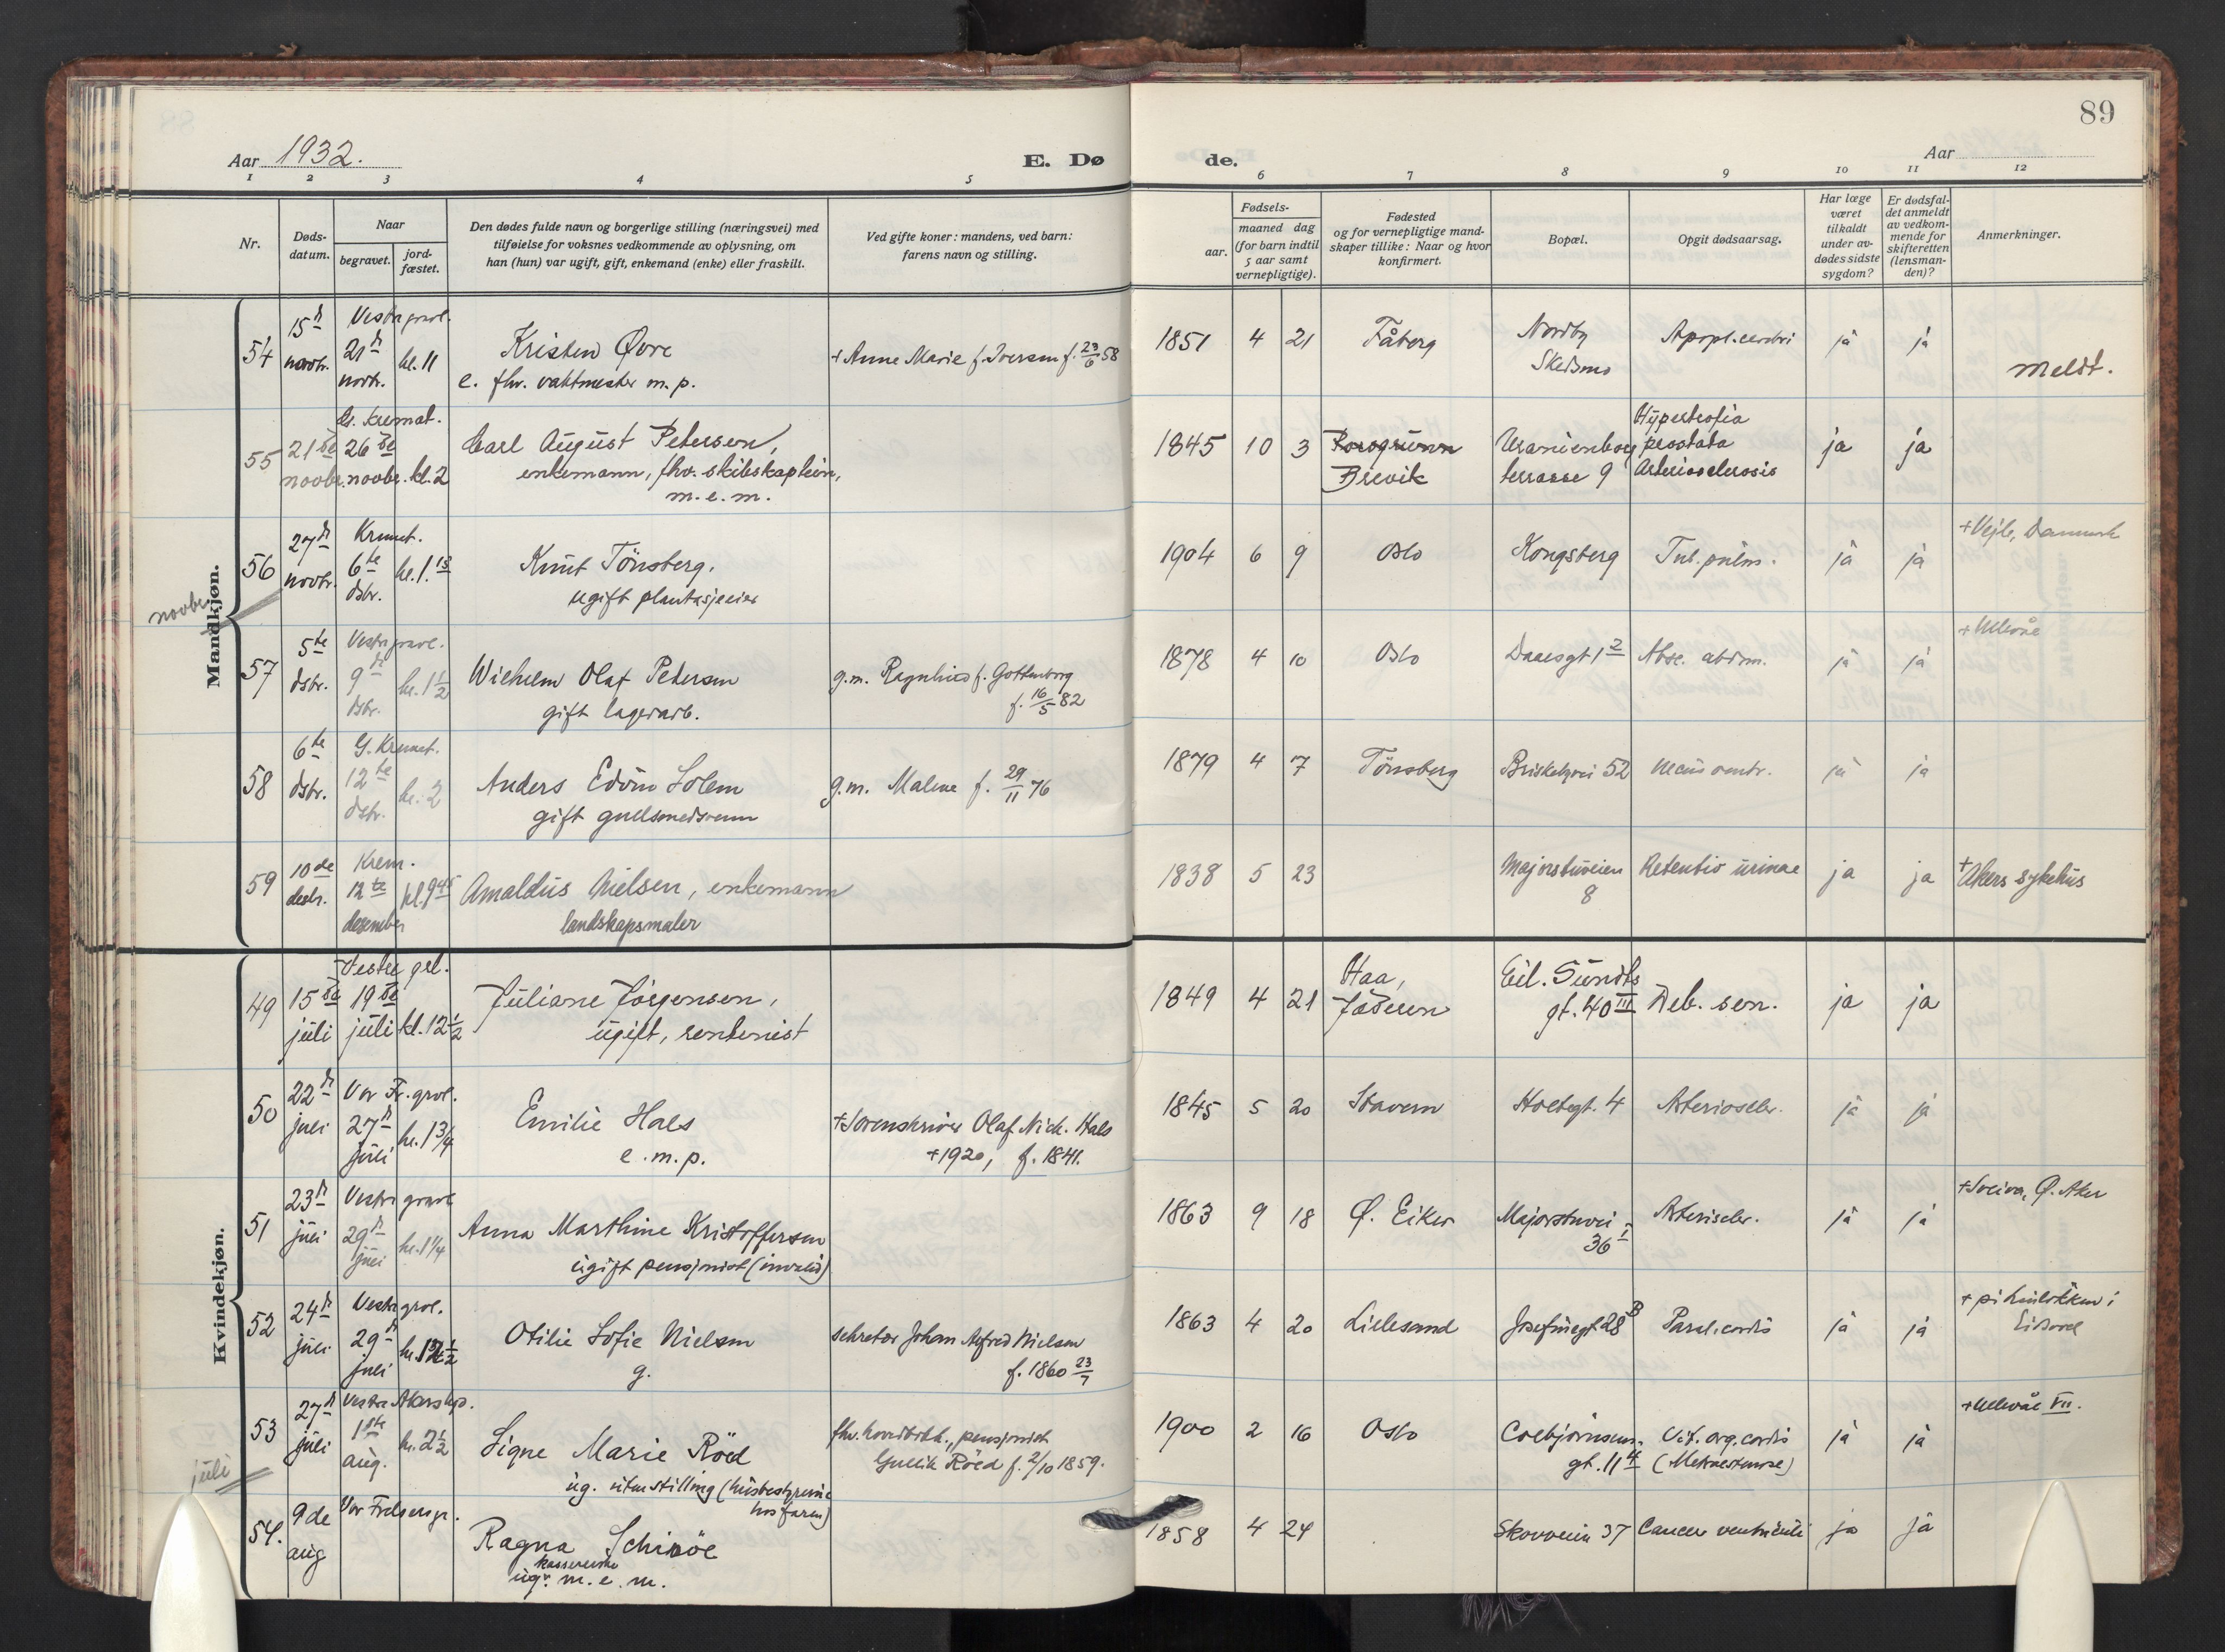 89
Aar 1932. E. Dø de. Aar
1 2 3 4 5 6 7 8 9 10 11 12
Nr.
Døds-
datum.
Naar
begravet.
jord-
fæstet.
Den dødes fulde navn og borgerlige stilling (næringsvei) med
tilføielse for voksnes vedkommende av oplysning, om
han (hun) var ugift, gift, enkemand (enke) eller fraskilt.
Ved gifte koner: mandens, ved barn:
farens navn og stilling.
Fødsels-
aar.
maaned dag
(for barn indtil
5 aar samt
vernepligtige).
Fødested
og for vernepligtige mand-
skaper tillike: Naar og hvor
konfirmert.
Bopæl.
Opgit dødsaarsag.
Har læge
været
tilkaldt
under av-
dødes sidste
sygdom?
Er dødsfal-
det anmeldt
av vedkom-
mende for
skifteretten
(lensman-
den)?
Anmerkninger.
Mandkjøn.
novbr.
54
15d
novbr.
Vestre gravl.
21d
novbr.
kl. 11
Kristen Øvre
e. fhv. vaktmester m. p.
+ Anne Marie f. Iversen f. 23/6 58
1851 4 21
Fåberg
Nordby
Skedsmo
Apopl. cerebri
ja
ja
meldt.
55
21de
novbr.
G. kremat.
26de
novbr. kl. 2
Carl August Petersen,
enkemann, fhv. skibskaptein,
m. e. m.
1845 10 3
Porsgrunn
Brevik
Uranienborg
terrasse 9
Hypertrofia
prostata
Arteriosclerosis
ja
ja
56
27d
novbr.
Kremat.
6te
dsbr.
kl. 1.15
Knut Tönsberg,
ugift plantasjeeier
1904 6 9
Oslo
Kongsberg
Tub. pulm.
ja
ja
+ Vejle, Danmark
57
5te
dsbr.
Vestre gravl.
9d
dsbr.
kl. 1 1/2
Wilhelm Olaf Petersen
gift lagerarb.
g.m. Ragnhild f. Gottenborg
f. 16/5 82
1878 4 10
Oslo
Daaesgt 1 2
Absc. abdom.
ja
ja
+ Ullevål
58
6te
dsbr.
G. Kremat.
12te
dsbr.
kl. 2
Anders Edvin Solem
gift gullsmedsvenn
g.m. Malene f. 29/11 76
1879 4 7
Tönsberg
Briskebyvei 52
Ulcus ventr.
ja
ja
59
10de
desbr.
Krem.
12te
desember
kl. 9 45
Amaldus Nielsen, enkemann
landskapsmaler
1838 5 23
Majorstuveien
8
Retentio urinae
ja
ja
+ Akers sykehus
Kvindekjøn.
juli
49
15de
juli
Vestre grl.
19de
juli kl. 12 1/2
Juliane Jörgensen,
ugift, rentenist
1849 4 21
Haa,
Jæderen
Eil. Sundts
gt. 40 III
Deb. sen.
ja
ja
50
22d
juli
Vor Fr. grvl.
27d
juli
kl. 1 3/4
Emilie Hals
e. m. p.
+ Sorenskriver Olaf Nick. Hals
+ 1920, f. 1841.
1845 5 20
Stavern
Holtegt. 4
Arterioscler.
ja
ja
51
23d
juli
Vestre gravl
29d
juli
kl. 1 1/4
Anna Marthine Kristoffersen
ugift pensjonist (invalid)
1863 9 18
Ø. Eiker
Majorstuvei
36 I
Arterioscler.
ja
ja
+ Sveiva, Ø. Aker
52
24d
juli
Vestre grvl.
29d
juli
Otilie Sofie Nielsen
g.
sekretær Johan Alfred Nielsen
f. 1860 23/7
1863 4 20
Lillesand
Josefinegt 28 B
Paral. cordis
ja
ja
+ på
Eidsvoll
53
27d
juli
Vestre Akers kgd.
1ste
aug.
kl. 2 1/2
Signe Marie Röed
ug. uten stilling (husbestyrerinne
hos faren)
fhv. hovedbokh., pensjonist
Gullik Röed f. 2/10 1859.
1900 2 16
Oslo
Colbjörnsens.
gt. 11 4
Vit. org. cordis
ja
ja
+ Ullevål VII.
54.
9de
aug
Vor Frelsersgr.
Ragna Schiröe
kassererske
ug. m. e. m.
1858 4 24
Skovveien 37
Cancer ventriculi
ja
ja